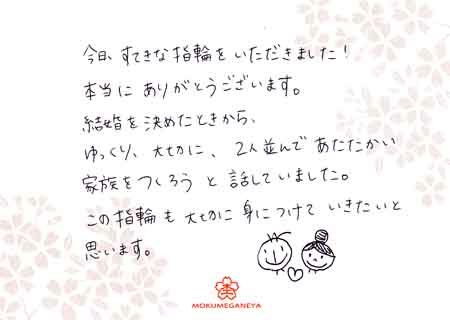 今日、すてきな指輪をいただきました！
本当にありがとうございます。
結婚を決めたときから、
ゆっくり、大切に、2人並んであたたかい
家族をつくろうと話していました。
この指輪も大切に身につけていきたいと
思います。
MOKUMEGANEYA